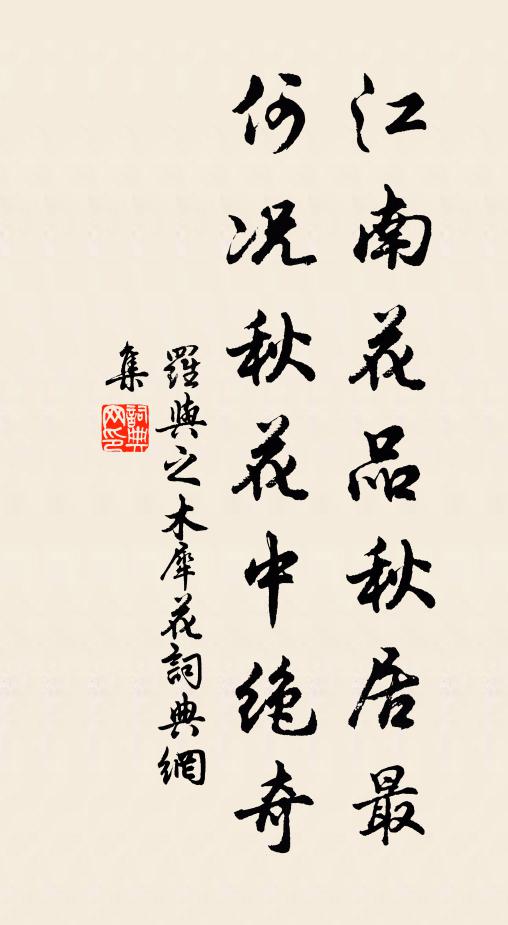 江南花品秋居最
何况秋花中绝奇
羅與之木犀花詞典網
集
詞典网印